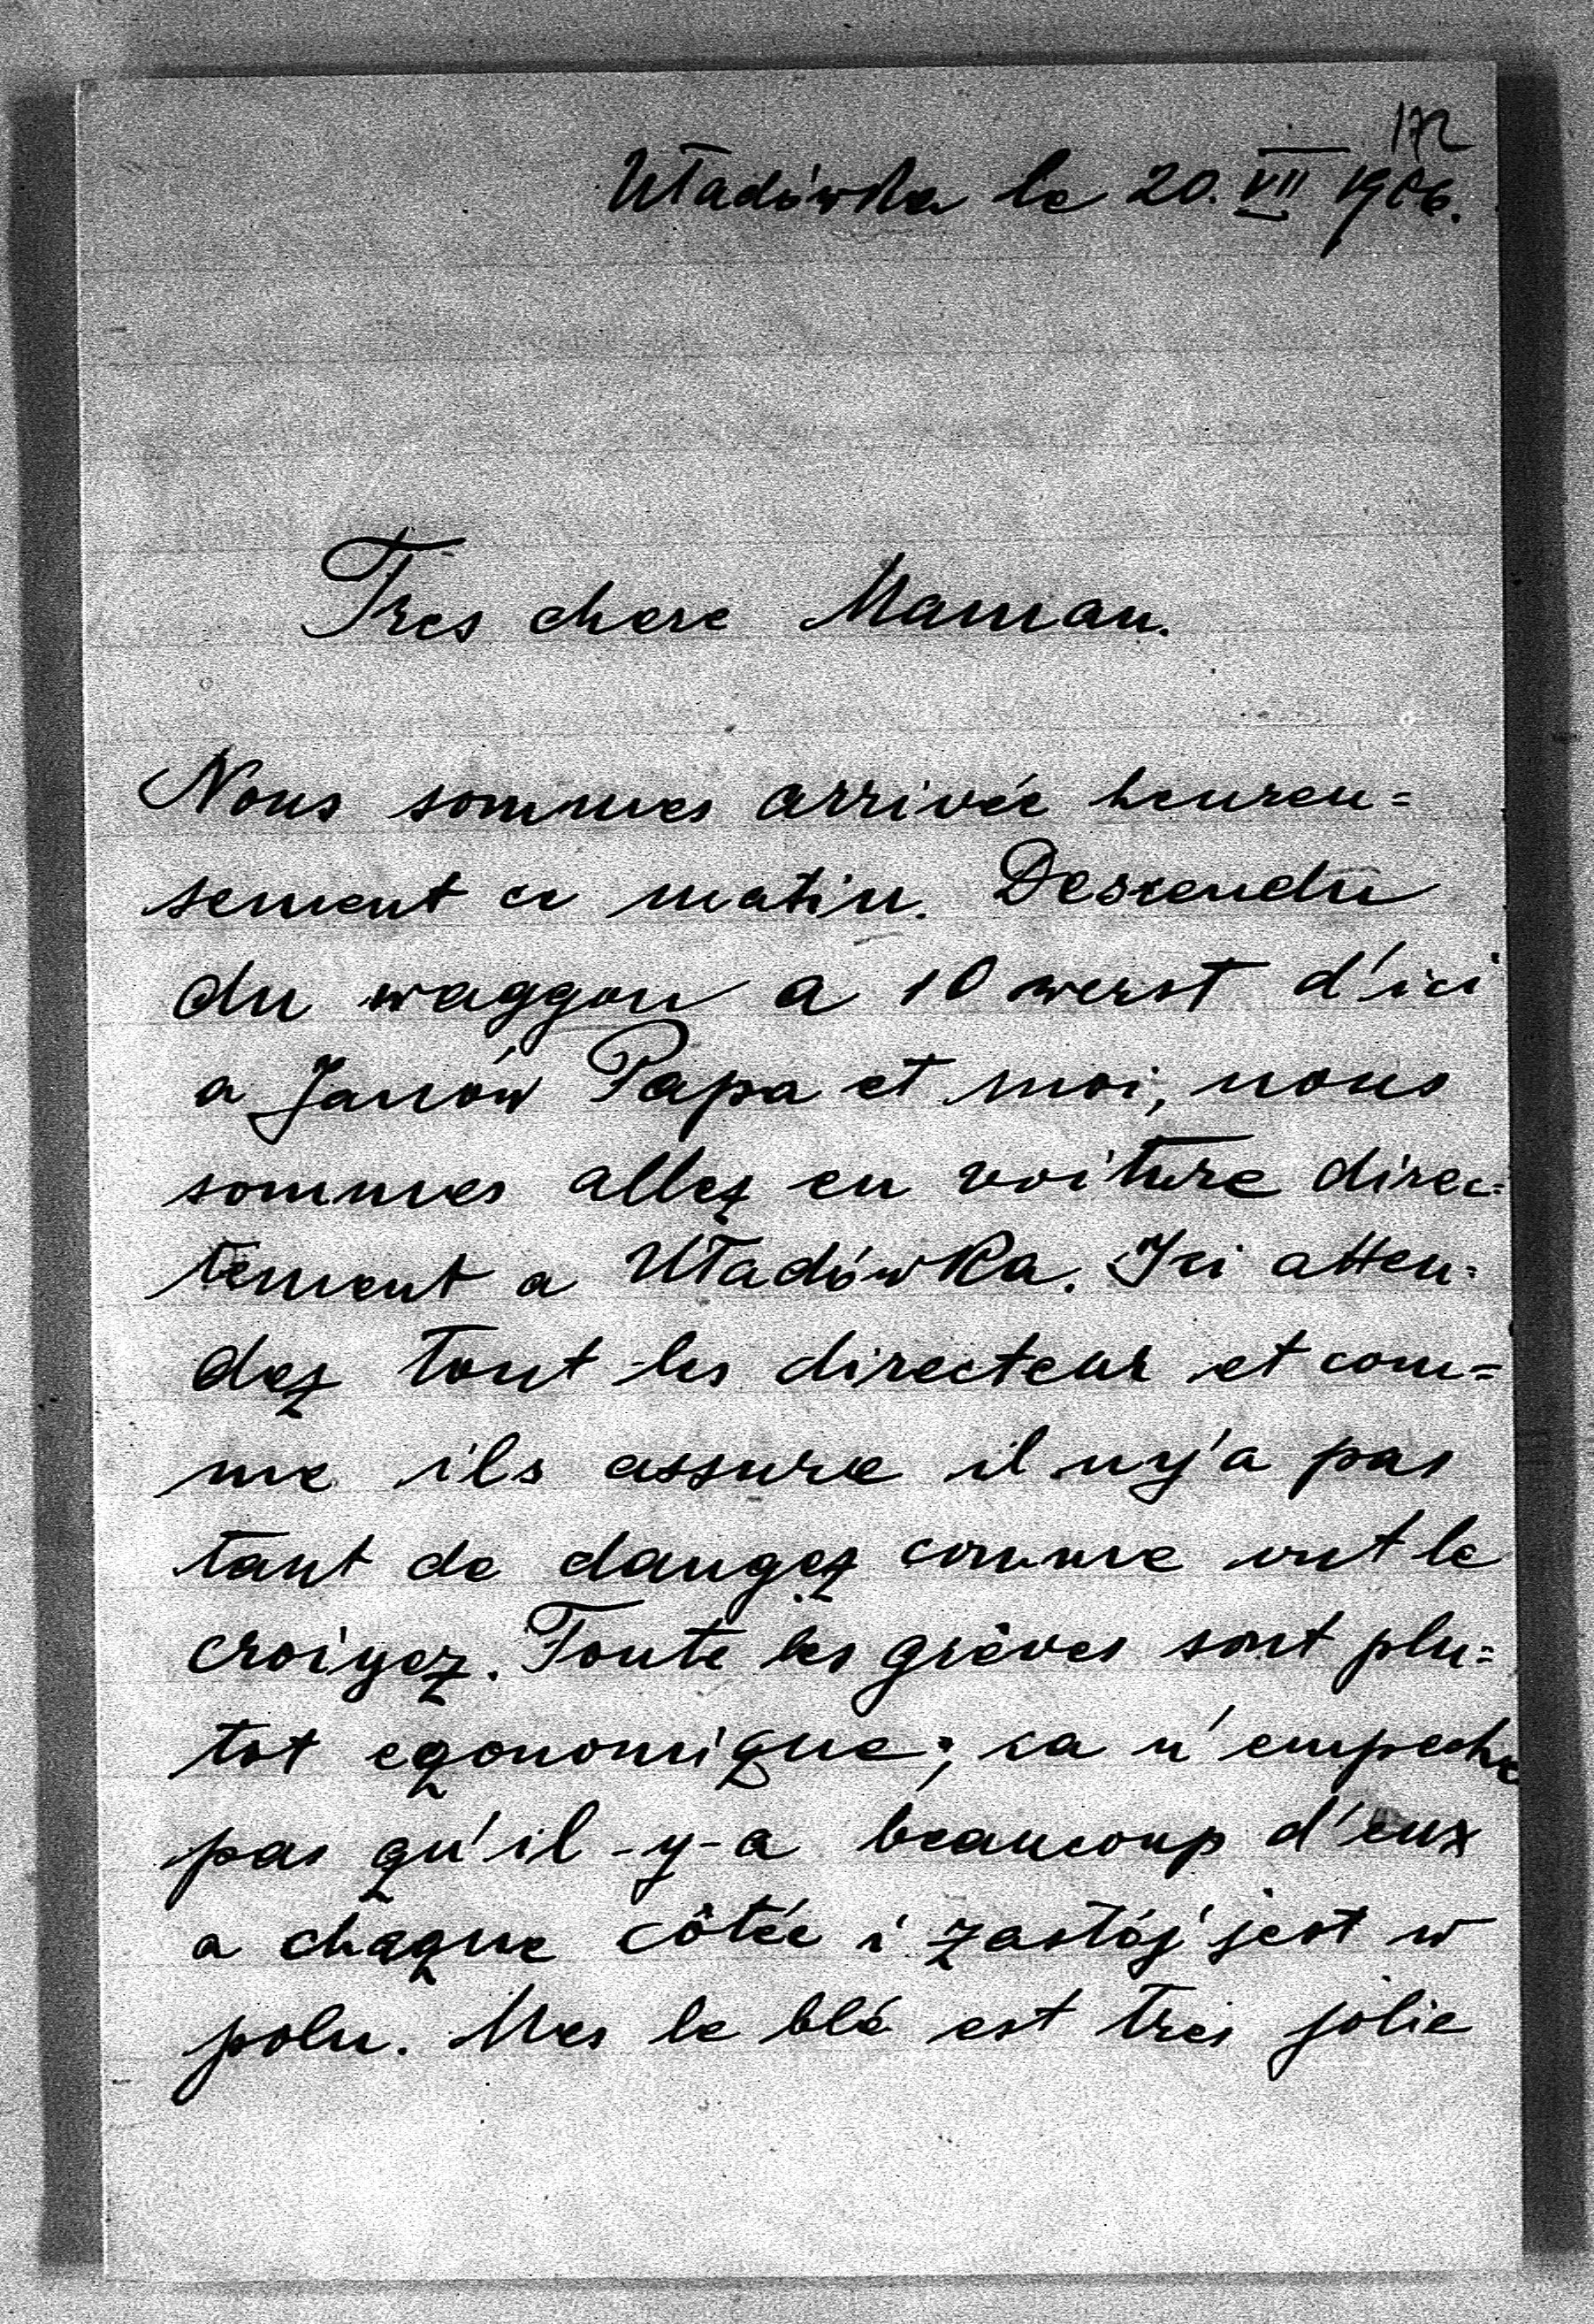 172
Uładówka le 20. VII 1906.
Tres chere Maman.
Nous sommes arrivée heureu=
sement ce matin. Descendu
du waggon a 10 werst d'ici
a Janów Papa et moi, nous
sommes allez en voiture direc=
tement a Uładówka. Ici atten=
dez tout les directeur et com=
me ils assure il ny'a pas
tant de dangez comme vut le
croiyez. Toute les grèves sont plu=
tot eqonomique; ca n'empeche
pas qu'il-y-a beaucoup d'eux
a chaque côtée i zastój jest w
polu. Mes le blé est tres jolie